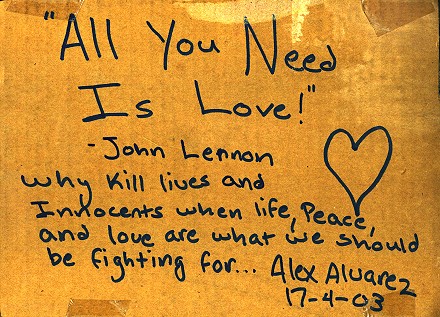 "All You Need
Is Love!"
- John Lennon
why kill lives and
Innocents when life, Peace,
and love are what we should
be fighting for... Alex Alvarez
17-4-03